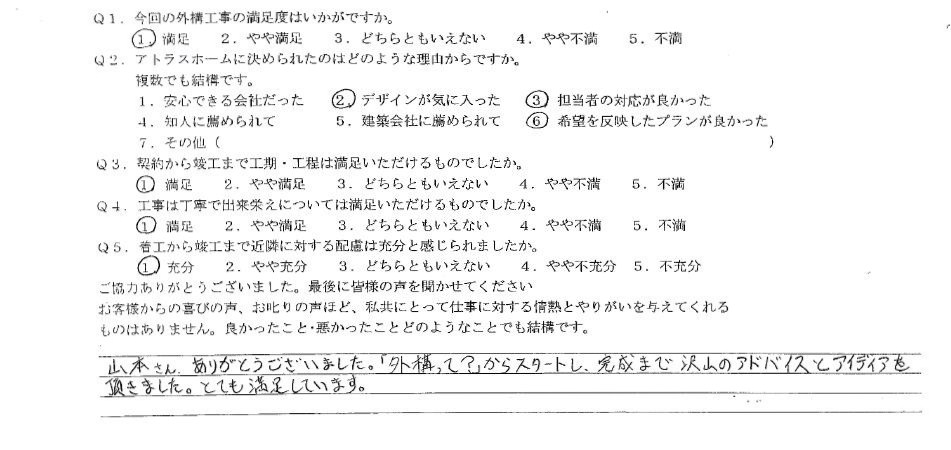 Q1．今回の外構工事の満足度はいかがですか。
①満足　2．やや満足　3．どちらともいえない　4．やや不満　5．不満
Q2．アトラスホームに決められたのはどのような理由からですか。
複数でも結構です。
1．安心できる会社だった　②デザインが気に入った　③担当者の対応が良かった
4．知人に薦められて　5．建築会社に薦められて　⑥希望を反映したプランが良かった
7．その他（　　　　　　　　）
Q3．契約から竣工まで工期・工程は満足いただけるものでしたか。
①満足　2．やや満足　3．どちらともいえない　4．やや不満　5．不満
Q4．工事は丁寧で出来栄えについては満足いただけるものでしたか。
①満足　2．やや満足　3．どちらともいえない　4．やや不満　5．不満
Q5．着工から竣工まで近隣に対する配慮は充分と感じられましたか。
①充分　2．やや充分　3．どちらともいえない　4．やや不充分　5．不充分
ご協力ありがとうございました。最後に皆様の声を聞かせてください
お客様からの喜びの声、お叱りの声ほど、私共にとって仕事に対する情熱とやりがいを与えてくれる
ものはありません。良かったこと・悪かったことどのようなことでも結構です。
山本さん、ありがとうございました。「外構って？」からスタートし、完成まで沢山のアドバイスとアイディアを
頂きました。とても満足しています。